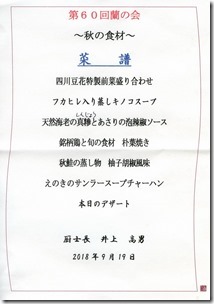 第60回蘭の会
～秋の食材～
菜譜
四川豆花特製前菜盛り合わせ
フカヒレ入り蒸しキノコスープ
天然海老の真丈とあさりの泡辣椒ソース
銘柄鶏と旬の食材 朴葉焼き
秋鮭の蒸し物 柚子胡椒風味
えのきのサンラースープチャーハン
本日のデザート
厨士長 井上 高男
2018年9月19日